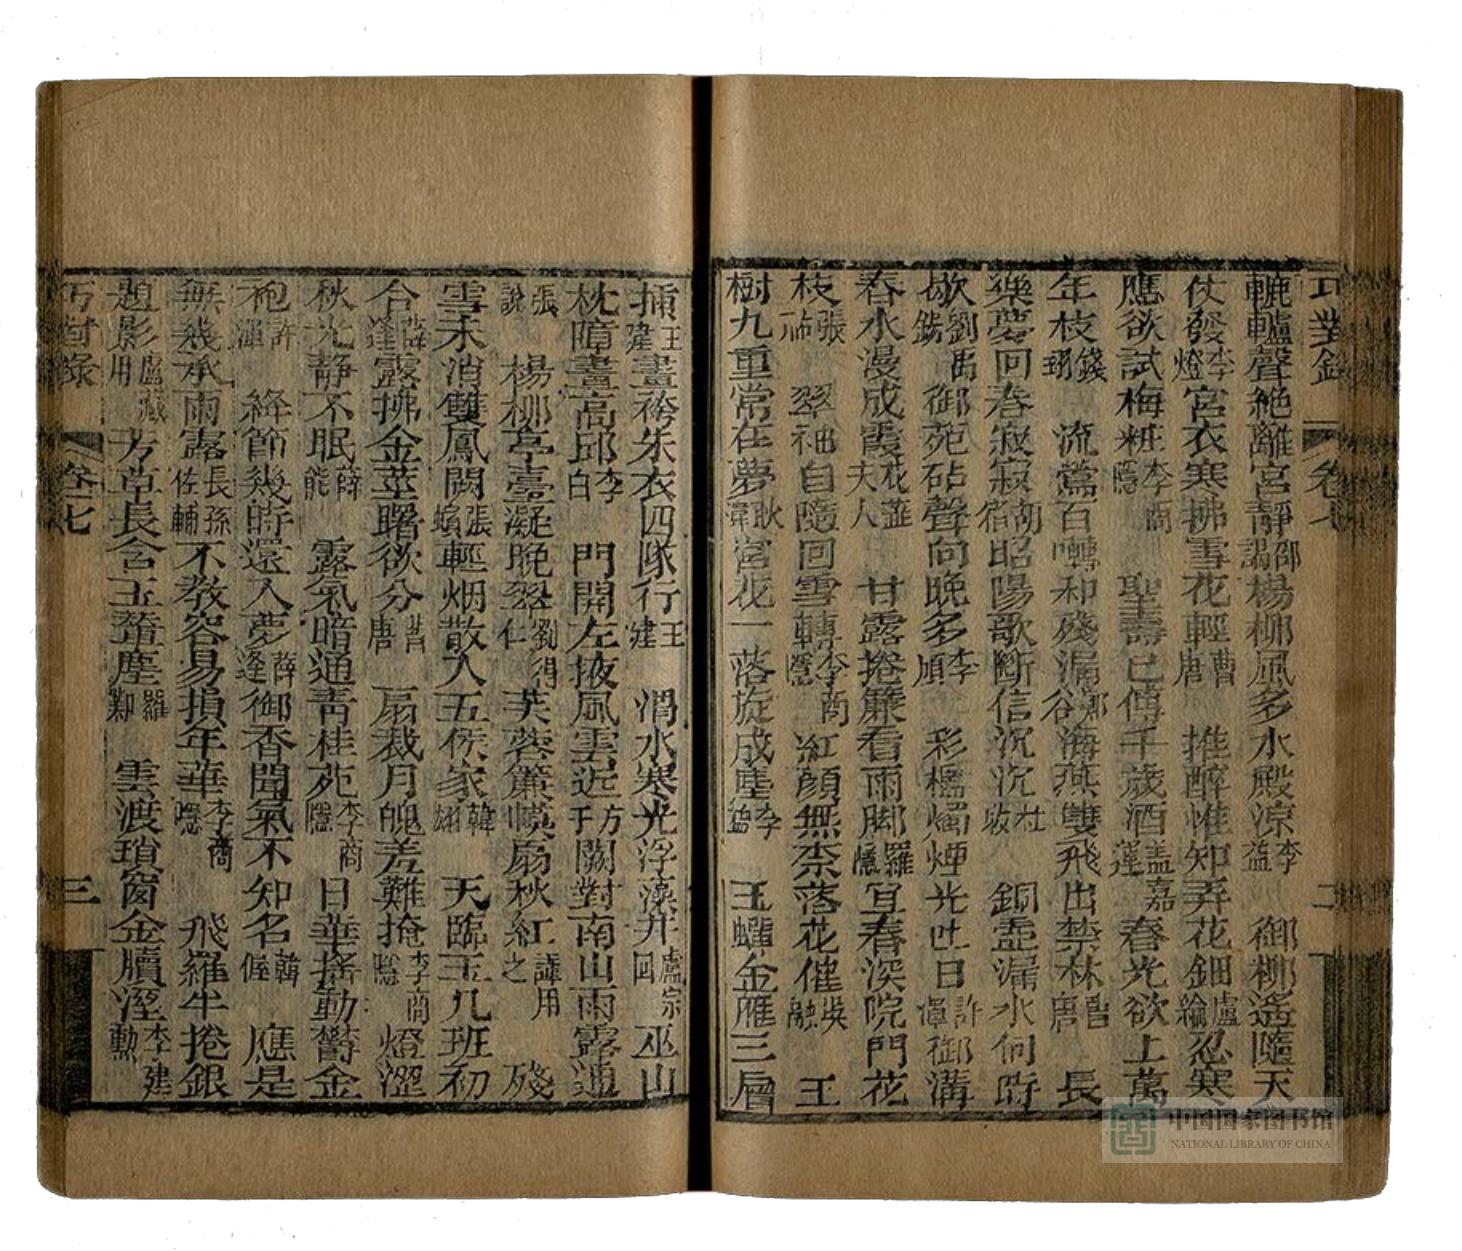 巧對錄 卷七 二
轆轤聲絶離宮靜邵謁楊柳風多水殿凉李益 御柳遙隨天
仗發李燈宮衣寒拂雪花輕曹唐 推醉惟知弄花鈿盧綸忍寒
應欲試梅粧李商隱 聖壽已傳千歲酒蓋嘉運春光欲上萬
年枝錢珝 流鶯百囀和殘漏鄭谷海燕雙飛出禁林曹唐 長
樂夢回春寂寂胡宿昭陽歌斷信沉沉杜牧 銅壺漏水何時
歇劉禹錫御苑砧聲向晚多李頎 彩櫺燭煙光吐日許渾御溝
春水漫成霞花蕊夫人 甘露捲簾看雨脚羅隱宜春深院門花
枝張祜 翠袖自隨回雪轉李商隱紅顏無柰落花催吳融 王
樹九重常在夢耿湋宮花一落旋成塵李 玉蠟金雁三層
插王建畫袴朱衣四隊行王建 渭水寒光浮藻井盧宗回巫山
枕障畫高邱李白 門開左掖風雲近方干闕對南山雨露通
張說 楊柳亭臺凝晚翠劉得仁芙蓉簾幙扇秋紅譚用之 殘
雪未消雙鳳闕張蠙輕烟散入五侯家韓翃 天臨玉几班初
合薛逢露拂金莖曙欲分曹唐 扇裁月魄羞難掩李商隱 燈澀
秋光靜不眠薛能 露氣暗通青桂苑李商隱日華搖動鬱金
袍許渾 絳節幾時還入夢薛逢御香聞氣不知名韓偓 應是
無幾承雨露長孫佐輔不教容易損年華李商隱 飛羅牛捲銀
題影盧藏用芳草長含玉輦塵羅鄴 雲渡瑣窗金牓溼李建勳
巧對錄 卷七 三
中国国家图书馆
NATIONAL LIBRARY OF CHINA